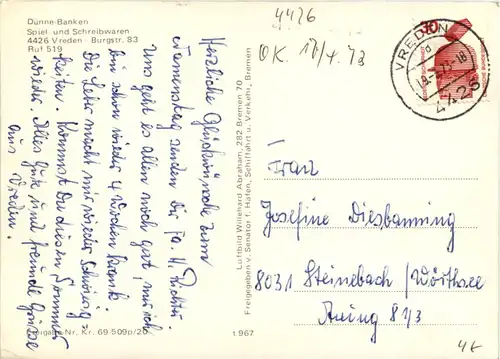 Dünne-Banken
Spiel und Schreibwaren
4426 Vreden Burgstr. 83
Ruf 519
4426
OK. 17/4.73
VREDEN
4426
Herzliche Glückwünsche zum
Namenstag senden Dir Fa. H. Richter.
Uns geht es allen noch gut, nur ich
bin schon wieder 4 Wochen krank
Die Leber macht mir wieder Schwierig-
keiten. Kommst Du diesen Sommer
wieder. Alles Gute und freundl. Grüße
aus Vreden.
Luftbild Willehard Abraham, 282 Bremen 70
Freigegeben v. Senator f. Häfen, Schiffahrt u. Verkehr, Bremen
Frau
Josefine Diesbanning
8031 Steinebach / Wörthsee
Auing 81/3
Freigabe Nr. Kr. 69 509p/20
t. 967
4t